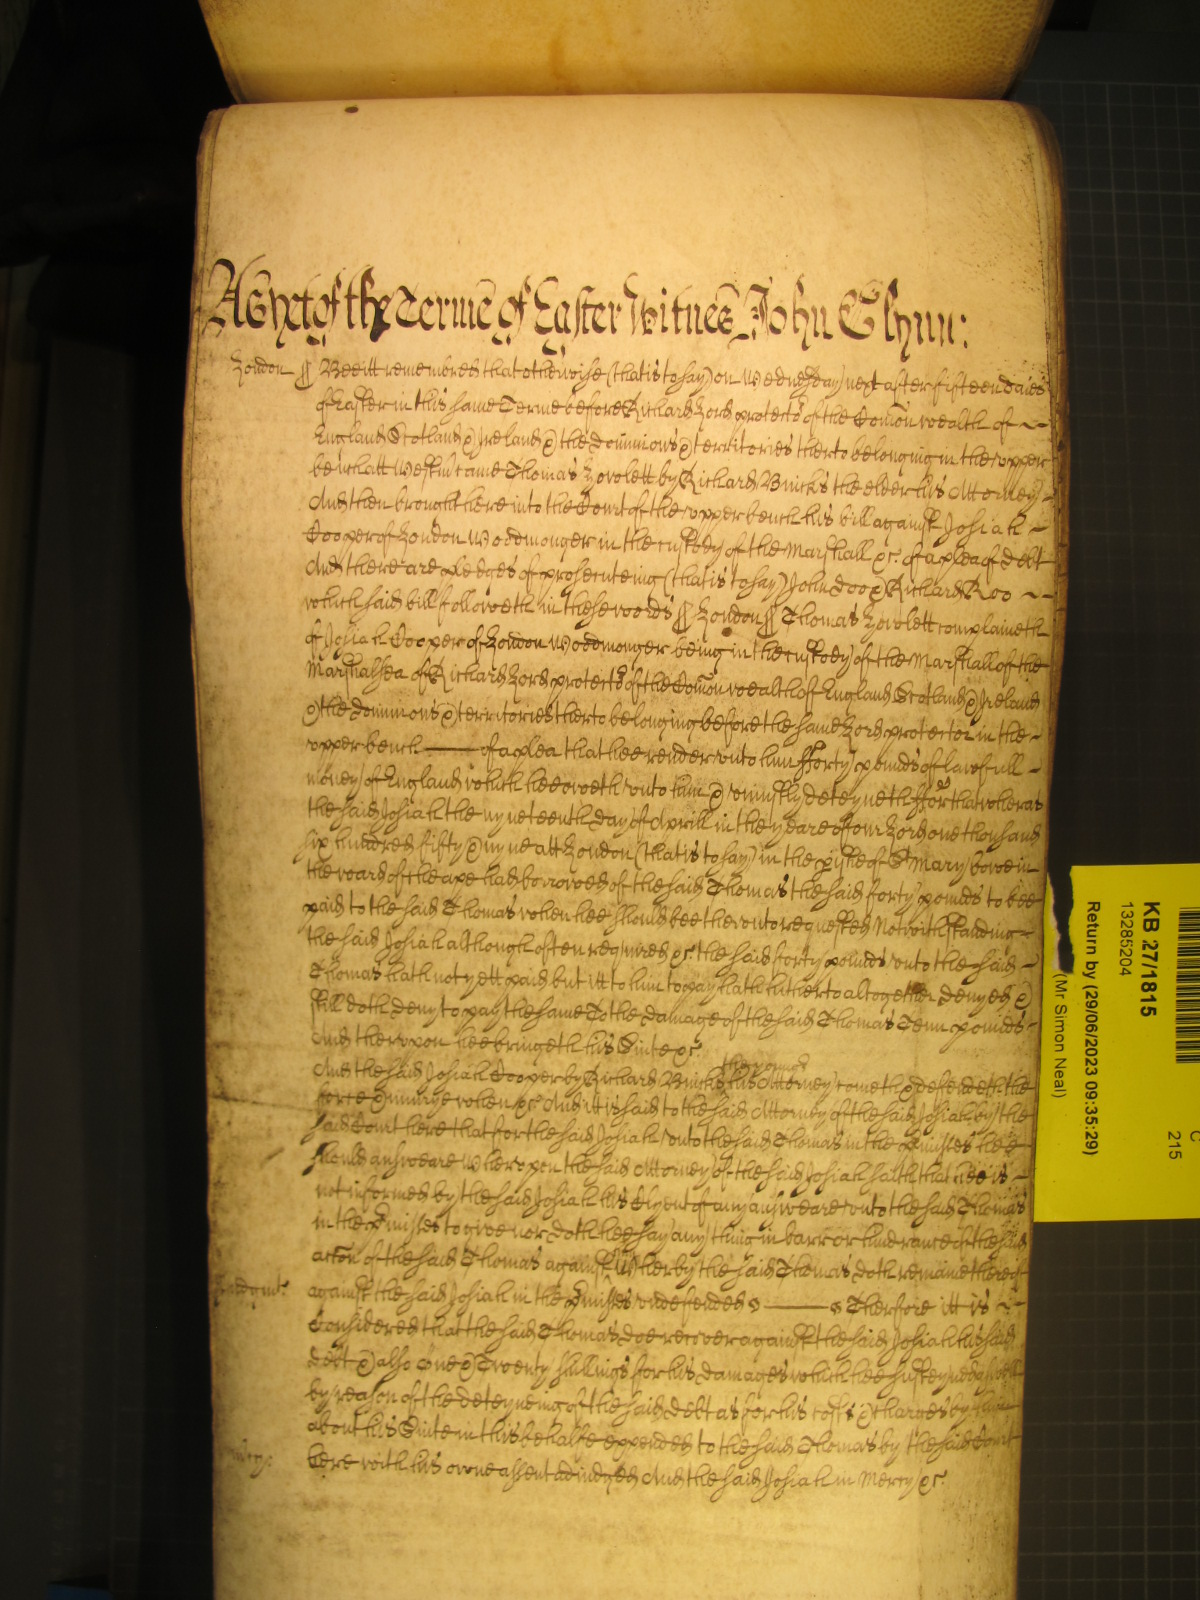 As yet of the Terme of Easter Witnes John Glynn:
London ¶ Bee itt remembred that otherwise (that is to say) on Wednesday next after fifteen daies
of Easter in this same Terme before Richard Lord protector of the Com̄on wealth of ~~
England Scotland & Ireland & the dominions & territories therto belonging in the upper
bench att Westm̄ came Thomas Howlett by Richard Bucks the elder his Attorney ~
And then brought here into the Court of the upper bench his bill against Josiah ~
Cooper of London Woodmonger in the custody of the Marshall &c. of a plea of debt
And there are pledges of prosecuteing (that is to say) John Doo & Richard Roo ~~
which said bill followeth in these words ¶ London ¶ Thomas Howlett complaineth
of Josiah Cooper of London Woodmonger being in the custody of the Marshall of the
Marshalsea of Richard Lord protector of the Com̄on wealth of England Scotland & Ireland
& the dominions & territories therto belonging before the same Lord protector in the ~
upper bench —— of a plea that hee render unto him fforty pounds of lawfull ~
money of England which hee oweth unto him & uniustly deteyneth ffor that wheras
the said Josiah the nyneteenth day of Aprill in the yeare of our Lord one thousand
six hundred fifty & nyne att London (that is to say) in the pishe of St Mary bowe in
the ward of cheape had borrowed of the said Thomas the said forty pounds to bee
paid to the said Thomas when hee should bee therunto requested Notwithstanding ~
the said Josiah although often required &c. the said forty pounds unto the said ~
Thomas hath not yett paid but itt to him to pay hath hitherto altogether denyed &
still doth deny to pay the same To the damage of the said Thomas Tenn pounds ~
And therupon hee bringeth his Suite &c.
the younger
And the said Josiah Cooper by Richard Bucks his Attorney cometh & defendeth the
force & iniurye when &c. And itt is said to the said Attorney of the said Josiah by the
said Court here that for the said Josiah unto the said Thomas in the p̄misses hee
should answeare Wherupon the said Attorney of the said Josiah saith that hee is ~
not informed by the said Josiah his Clyent of any answeare unto the said Thomas
in the p̄misses to give nor doth hee say any thing in barr or hindrance of the said
acc̄on of the said Thomas against wherby the said Thomas doth remaine thereof
Judgmt. against the said Josiah in the p̄misses undefended —— Therfore itt is ~
Considered that the said Thomas doe recover against the said Josiah his said
debt & also One & Twenty shillings for his damages which hee susteyned aswell
by reason of the deteyneing of the said debt as for his costs & charges by him
about his Suite in this behalfe expended to the said Thomas by the said Court
mercy. here with his owne assent adiudged And the said Josiah in Mercy &c.
KB 27/1815
13285204
Return by (29/06/2023 09:35:29)
(Mr Simon Neal)
215